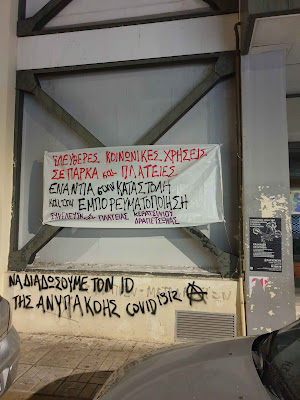 ΕΛΕΥΘΕΡΕΣ ΚΟΙΝΩΝΙΚΕΣ ΧΡΗΣΕΙΣ
ΣΕ ΠΑΡΚΑ και ΠΛΑΤΕΙΕΣ
ΕΝΑΝΤΙΑ στην ΚΑΤΑΣΤΟΛΗ
και την ΕΜΠΟΡΕΥΜΑΤΟΠΟΙΗΣΗ
ΣΥΝΕΛΕΥΣΗ ΠΛΑΤΕΙΑΣ ΚΕΡΑΤΣΙΝΙΟΥ
ΔΡΑΠΕΤΣΩΝΑΣ
ΝΑ ΔΙΑΔΩΣΟΥΜΕ ΤΟΝ ΙΟ
ΤΗΣ ΑΝΥΠΑΚΟΗΣ COVID 1312